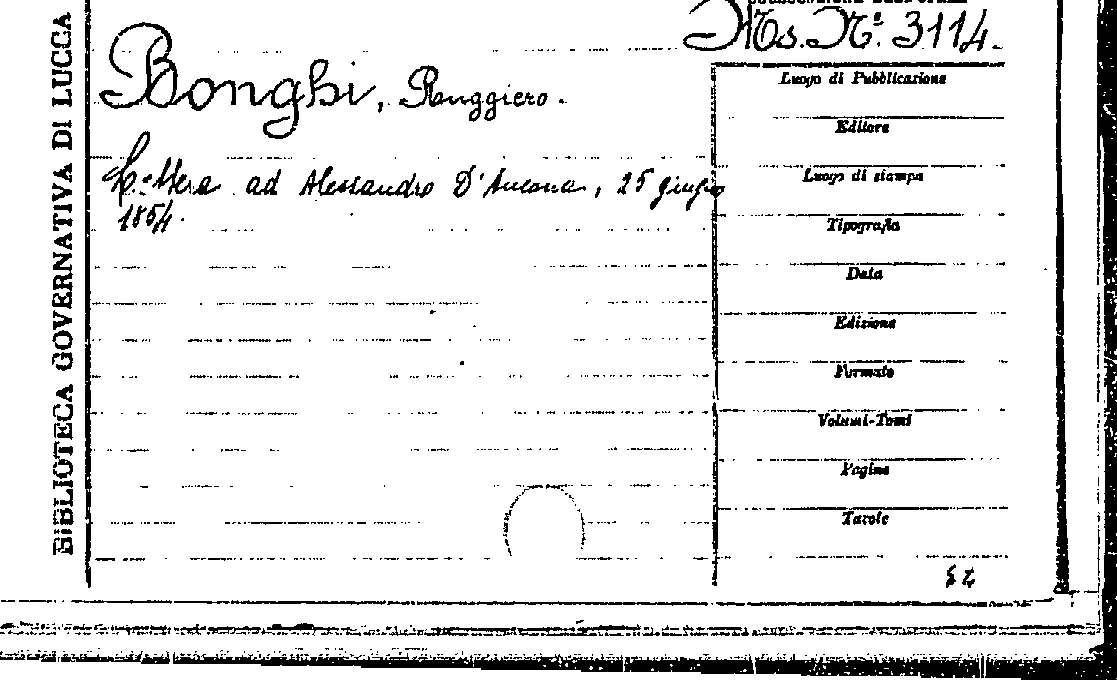 BIBLIOTECA GOVERNATIVA DI LUCCA
Ms. N°. 3114.
Bonghi, Ruggiero.
Lettera ad Alessandro D'Ancona, 25 giugno
1854.
Luogo di Pubblicazione
Editore
Luogo di stampa
Tipografia
Data
Edizione
Formato
Volumi-Tomi
Pagine
Tavole